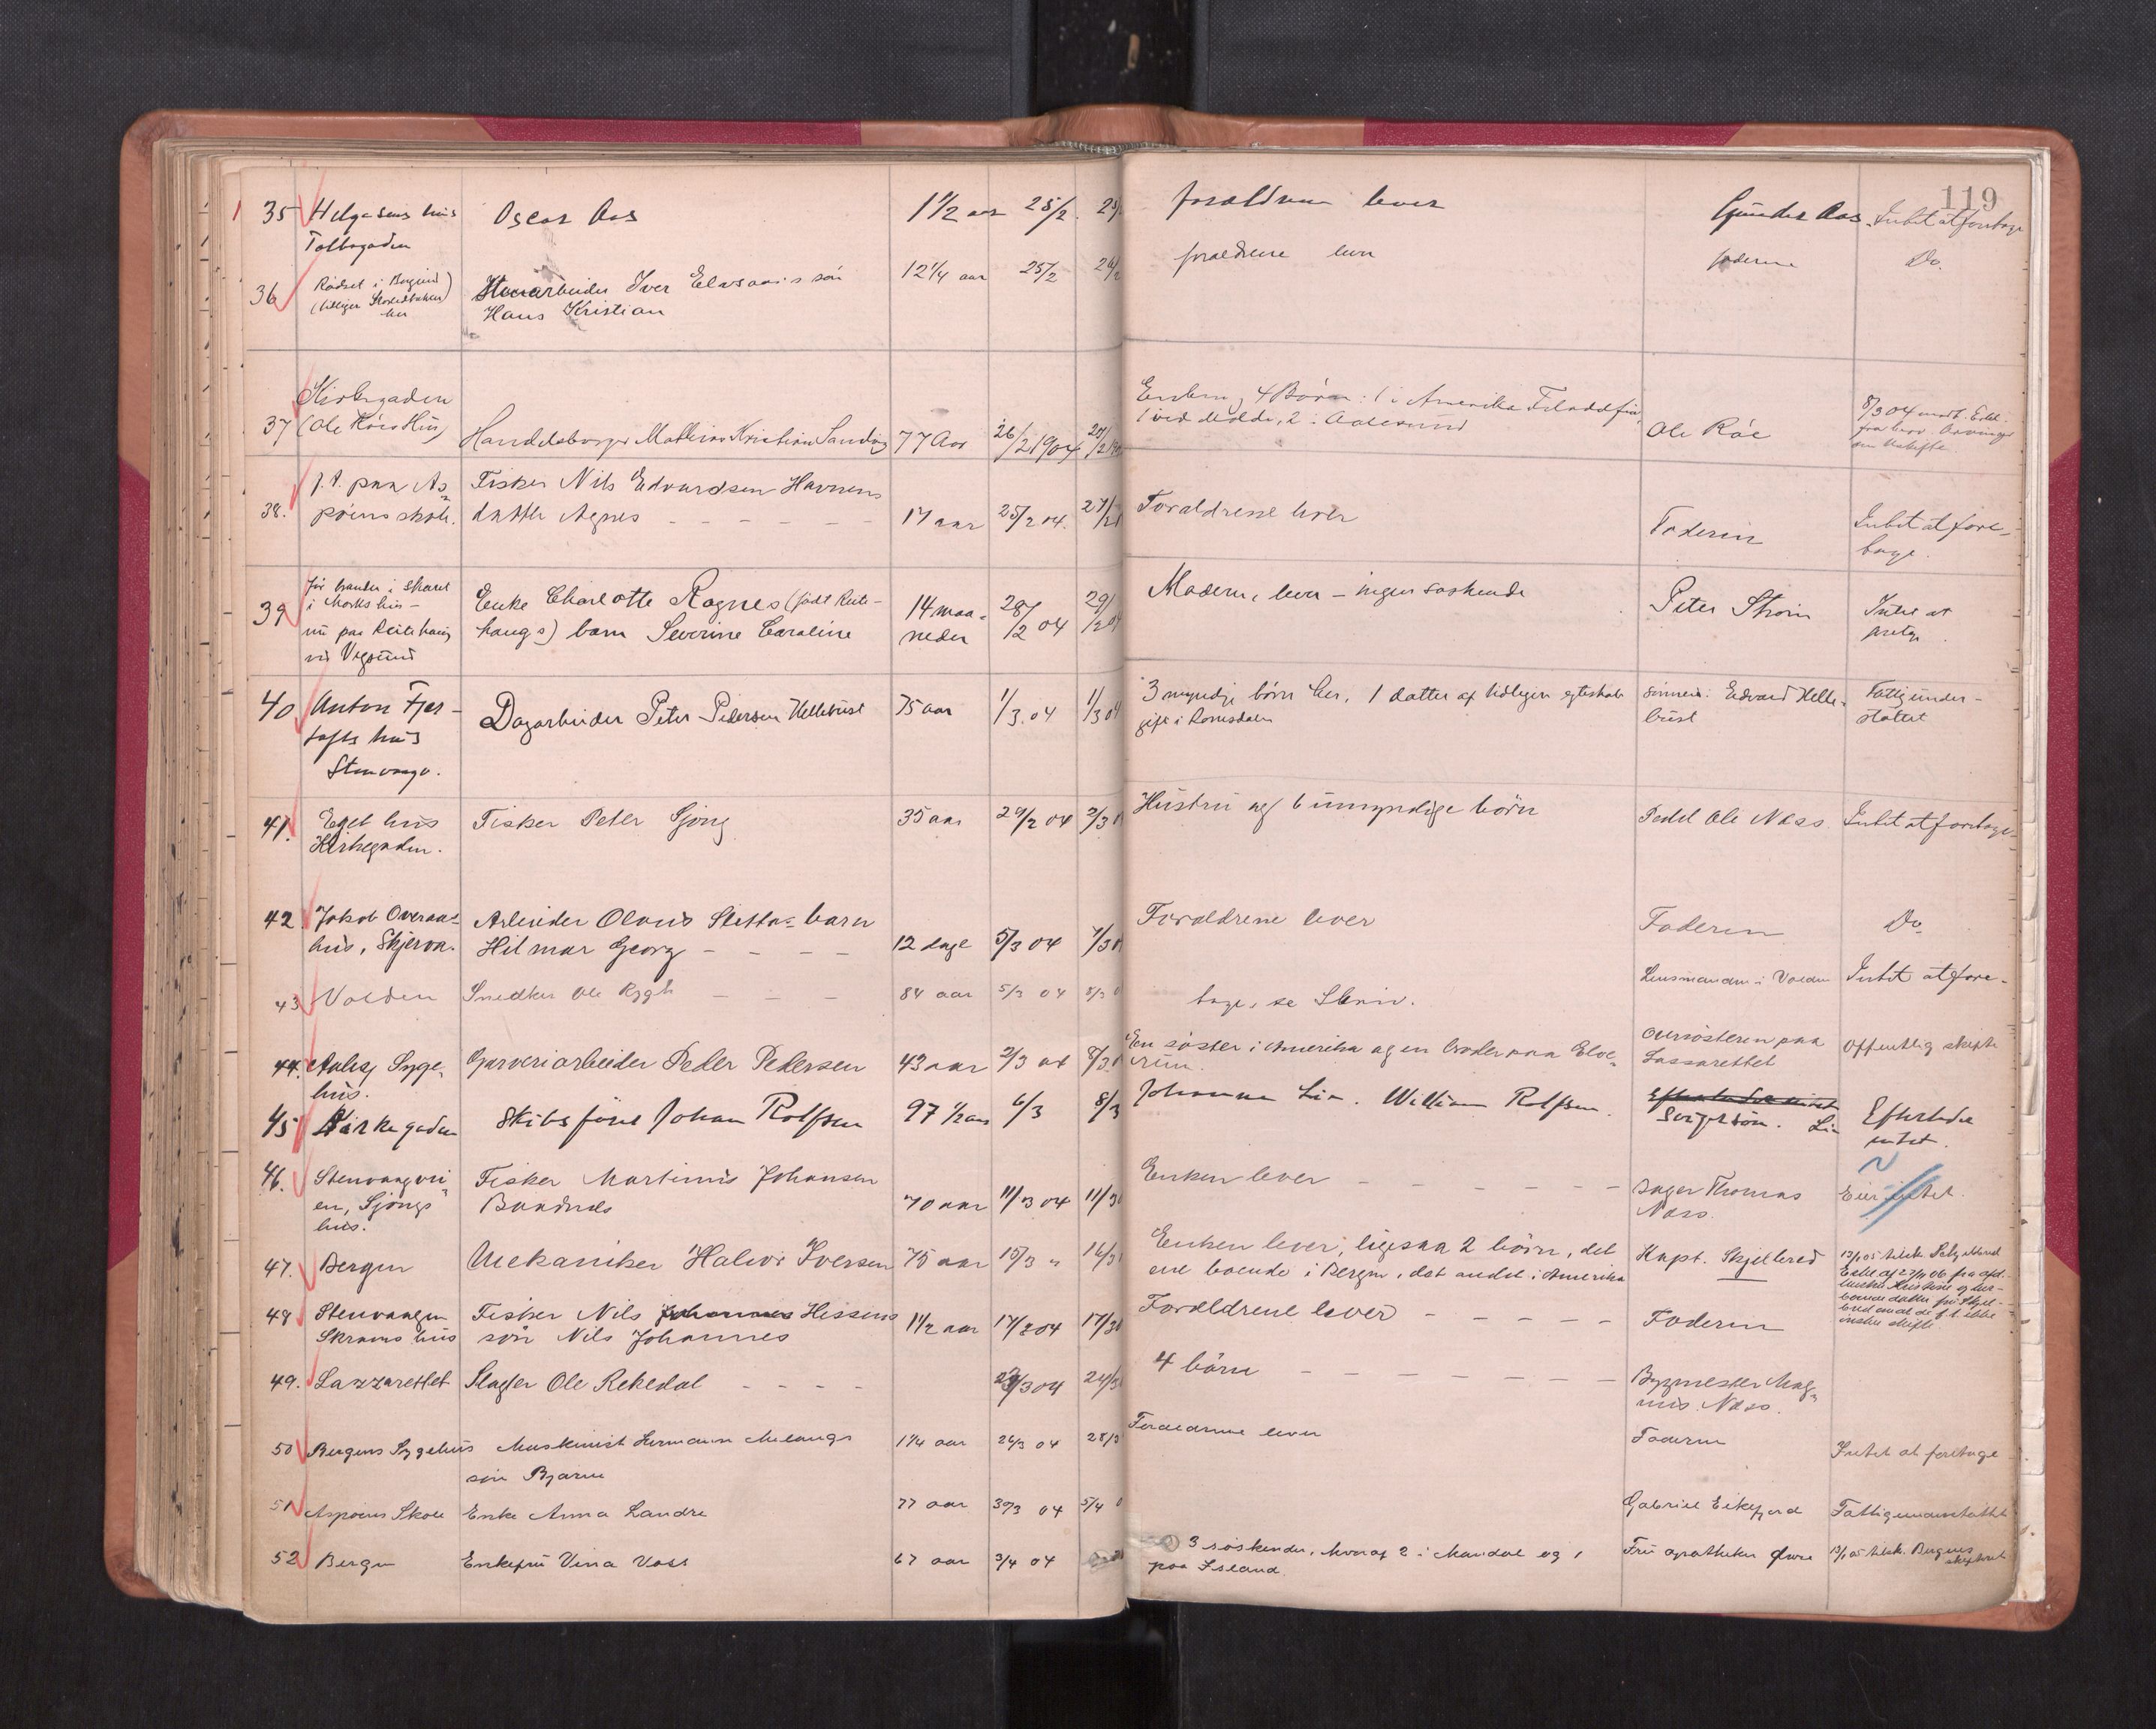 119
35 Helgesens hus Oscar Aas 1 1/2 aar 25/2 forældrene lever Gunder Aas Intet at foretage
Toldbogaden
36 i Borgund Stenarbeider Iver Elvsaas's søn 12 1/4 aar 25/2 forældrene lever faderen Do.
Hans Kristian
Kirkegaden
37 (Ole Röes Hus) Handelsborger Mathias Kristian Sandvig 77 Aar 26/2 1904
Enken, 4 Börn: 1 i Amerika
1 ved Molde, 2 i Aalesund Ole Röe 8/3 04
38. p.t. paa As= Fisker Nils Edvardsen Havnens
pöens skole. datter Agnes - - - - - - 17 aar 25/2 04. 27/2 Forældrene lever Faderen Intet at fore-
tage.
39 för branden i Skaret
i Morks hus -
nu paa Reitehaug
ved Vegsund
Enke Charlotte Rognes (født Reite-
haugs) barn Severine Caroline 14 maa-
neder 28/2 04 29/2 04 Moderen lever - ingen søskende Peter Strøm Intet at
foretage
40 Anton Fjør-
tofts hus
Stenvaagv.
Dagarbeider Peter Pedersen Hellebust 75 aar 1/3.04 1/3 04
3 myndige børn her, 1 datter af tidligere egteskab
gift i Romsdalen sønnen: Edvard Helle-
bust Fattigunder-
støttet
41. Eget hus Fisker Peter Gjong 35 aar 29/2 04 2/3 Hustru og 6 umyndige börn Pedel Ole Næss Intet at foretage
Kirkegaden.
42. Jakob Overaas= Arbeider Olaus Sletta= barn
hus, Skjerva. Hilmar Georg - - - - 12 dage 5/3 04 7/3 Forældrene lever Faderen Do
43 Volden Snedker Ole Rygh - - - 84 aar 5/3 04 8/3 Lensmanden i Volden Intet at fore-
tage, se Skriv.
44. Aales. Syge-
hus. Garveriarbeider Peder Pedersen 43 aar 2/3 04 8/3 En søster i Amerika og en broder paa Elve-
rum. Oversösteren paa
Lassarettet Offentlig skifte
45 Kirkegaden Skibsfører Johan Rolfsen 97 1/2 aar 6/3 8/3 Johanne Lie. William Rolfsen. Svigersøn. Lie Efterlader
intet.
46. Stenvaagvei
en, Gjöngs
hus. Fisker Martinus Johansen
70 aar 11/3 04 11/3 Enken lever - - - - - - Thomas
Næss. Eier intet.
47. Bergen Mekaniker Halvor Iversen 75 aar 15/3 " 16/3 Enken lever, ligesaa 2 börn, det
ene boende i Bergen, det andet i Amerika Kapt. Skjelbred
48 Stenvaagen Fisker Nils Johannes Hessens
Skrams hus søn Nils Johannes 1 1/2 aar 17/3 04 17/3 Forældrene lever - - - - - Faderen
49. Lazzarettet Slagter Ole Rekedal - - - - 23/3 04 24/3 4 börn - - - - - - - Bygmester Mag=
nus Næss.
50 Bergens Sygehus Maskinist Hermann Melangs
søn Bjarne 1 1/4 aar 26/3 04 28/3 Forældrene lever Faderen Intet at foretage
51 Aspøens Skole Enke Anna Landre 77 aar 30/3 04 5/4 Gabriel Eikefjord Fattigunderstøttet
52 Bergen Enkefru Vina Voss 67 aar 3/4 04 3 söskende, hvoraf 2 i Mandal og 1
paa Island. Fru apotheker Øwre 13/1 05 Bergens
skifteret